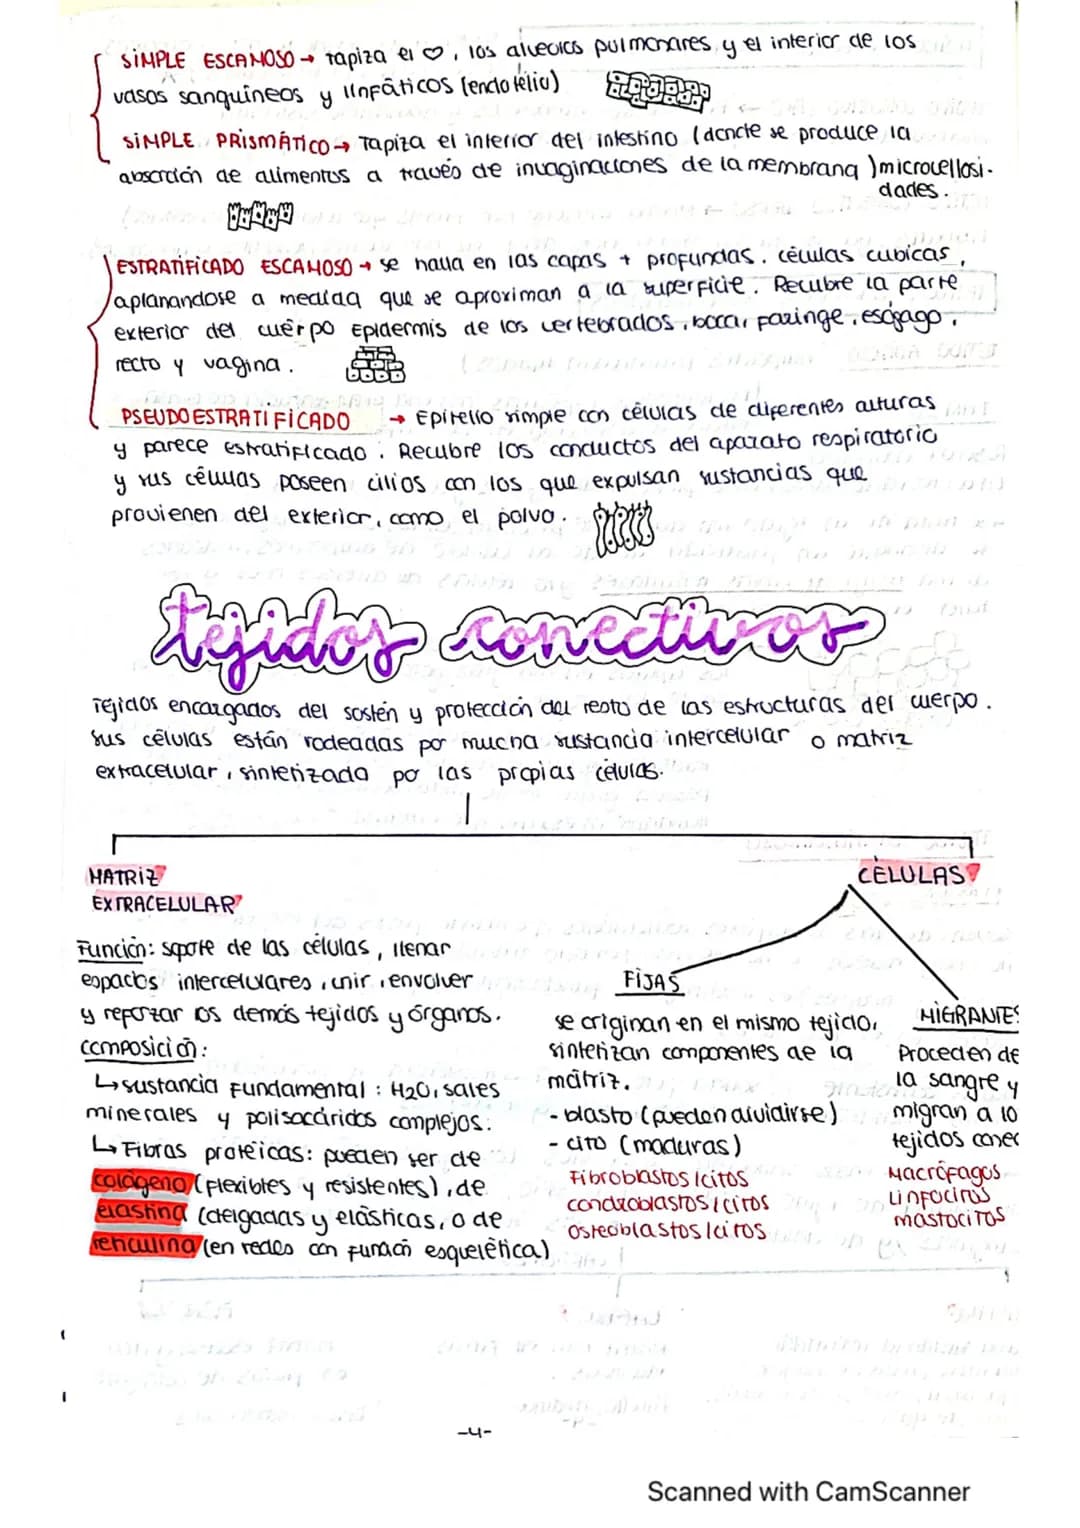 SIMPLE ESCAMOSO → tapiza el ♡, los alveolos pulmonares y el interior de los
vasos sanguíneos y linfáticos (endotélio)
SIMPLE PRISMÁTICO → Tapiza el interior del intestino (donde se produce la
absorción de alimentos a través de invaginaciones de la membrana) microvellosi-
dades.
ESTRATIFICADO ESCAMOSO → se halla en las capas + profundas. células cubicas,
aplanandose a medida que se aproximan a la superficie. Recubre la parte
exterior del cuerpo Epidermis de los vertebrados, boca, faringe, esófago,
recto y vagina.
PSEUDOESTRATIFICADO → Epitelio simple con células de diferentes alturas
y parece estratificado. Recubre los conductos del aparato respiratorio
y sus células poseen cilios con los que expulsan sustancias que
provienen del exterior, como el polvo.
tejidos conectivos
Tejidos encargados del sostén y protección del resto de las estructuras del cuerpo.
Sus células están rodeadas por mucha sustancia intercelular o matriz
extracelular, sintetizada por las propias células.
MATRIZ
EXTRACELULAR
Función: soporte de las células, llenar
espacios intercelulares, unir, envolver
y reforzar los demás tejidos y órganos.
composición:
↳ sustancia Fundamental: H2O, sales
minerales y polisacáridos complejos.
↳ Fibras protéicas: pueden ser de
colágeno (flexibles y resistentes), de
elastina (delgadas y elásticas, o de
reticulina (en redes con función esquelética)
CÉLULAS
FIJAS
se originan en el mismo tejido,
sintetizan componentes de la
matriz.
- blasto (pueden dividirse)
- cito (maduras)
Fibroblastos/citos
condroblastos/citos
Osteoblastos/citos
MIGRANTES
Proceden de
la sangre y
migran a lo
tejidos conec
Macrófagos
Linfocitos
mastocitos
-4-
Scanned with CamScanner